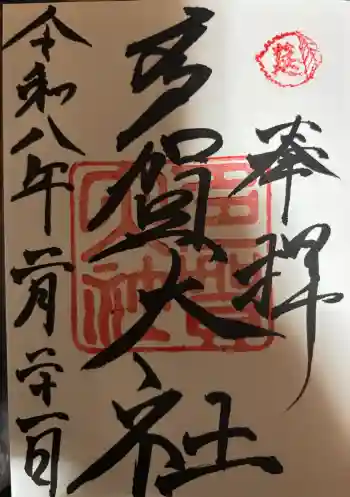 奉拝
多賀大社
令和八年二月廿一日